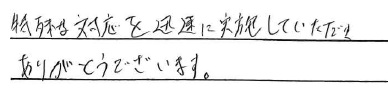 特殊な対応を迅速に実施していただき
ありがとうございます。